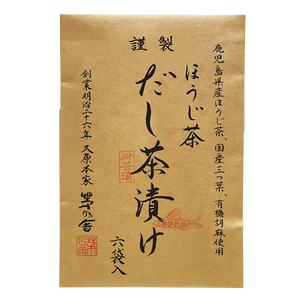 謹製
鹿児島県産ほうじ茶、国産三つ葉、有機胡麻使用
ほうじ茶
だし茶漬け
六袋入
創業明治二十六年 久原本家 茅乃舎
御茶漬